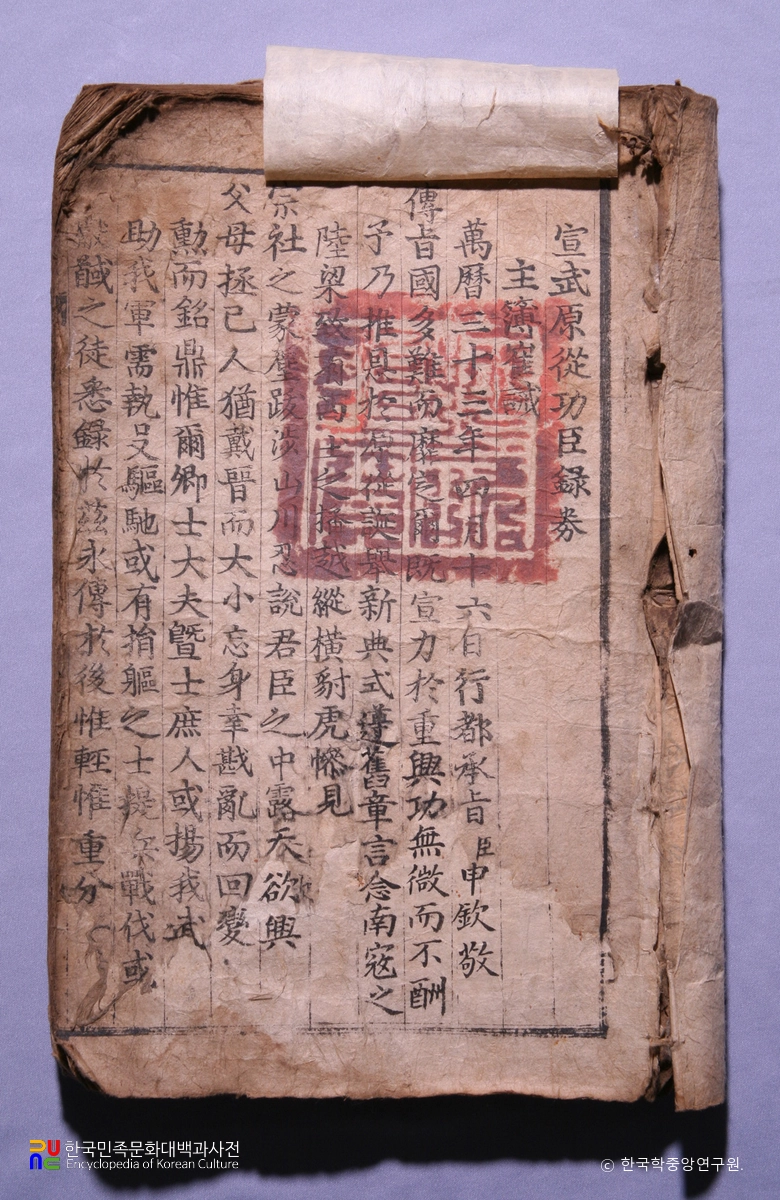 宣武原從功臣錄券
主簿崔誠
萬曆三十三年四月十六日行都承旨臣申欽敬
傳旨國多難而靡定爾既宣力於重興功無微而不酬
予乃推恩於原從誕擧新典式遵舊章言念南寇之
陸梁有西土之播越縱橫豺虎慘見
宗社之蒙塵跋涉山川忍說君臣之中露天欲興
父母拯已人猶戴晉而大小忘身幸戡亂而回變
勳而銘鼎惟爾卿士大夫曁士庶人或揚我武
助我軍需執殳驅馳或有捐軀之士提兵戰伐或
馘之徒悉錄於玆永傳於後惟輕惟重分
한국민족문화대백과사전
Encyclopedia of Korean Culture
© 한국학중앙연구원.